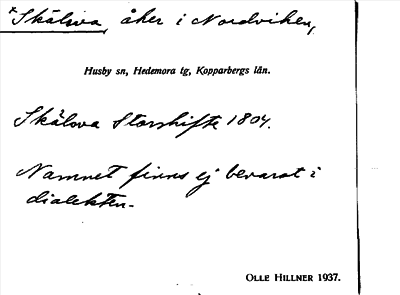 *Skälsva, åker i Nordviken,
Husby sn, Hedemora tg, Kopparbergs län.
Skälova Storskifte 1804.
Namnet finns ej bevarat i
dialekten.
OLLE HILLNER 1937.